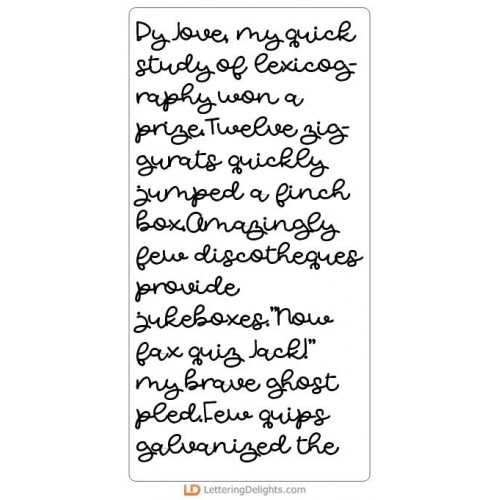 Dy Jove, my quick
study of lexicog-
raphy won a
prize.Twelve zig-
gurats quickly
jumped a finch
box.Amazingly
few discotheques
provide
jukeboxes."Now
fax quiz Jack!"
my brave ghost
pled.Few quips
galvanized the
LD LetteringDelights.com